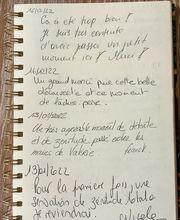 Ça a été trop bien !
Je suis très contente
d'avoir passer un petit
moment ici ! Merci !
Un grand merci pour cette belle
découverte et ce moment
de lâcher-prise.
13/01/2022
Un très agréable moment de détente
et de zénitude
merci de
Franck.
13/01/2022
Pour la première fois, une
sensation de zénitude totale
Je reviendrai.